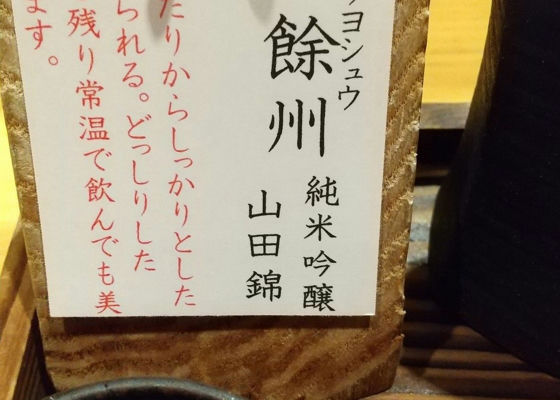 ヨシュウ
餘州
純米吟醸
山田錦
たりからしっかりとした
られる。どっしりした
残り常温で飲んでも美
ます。